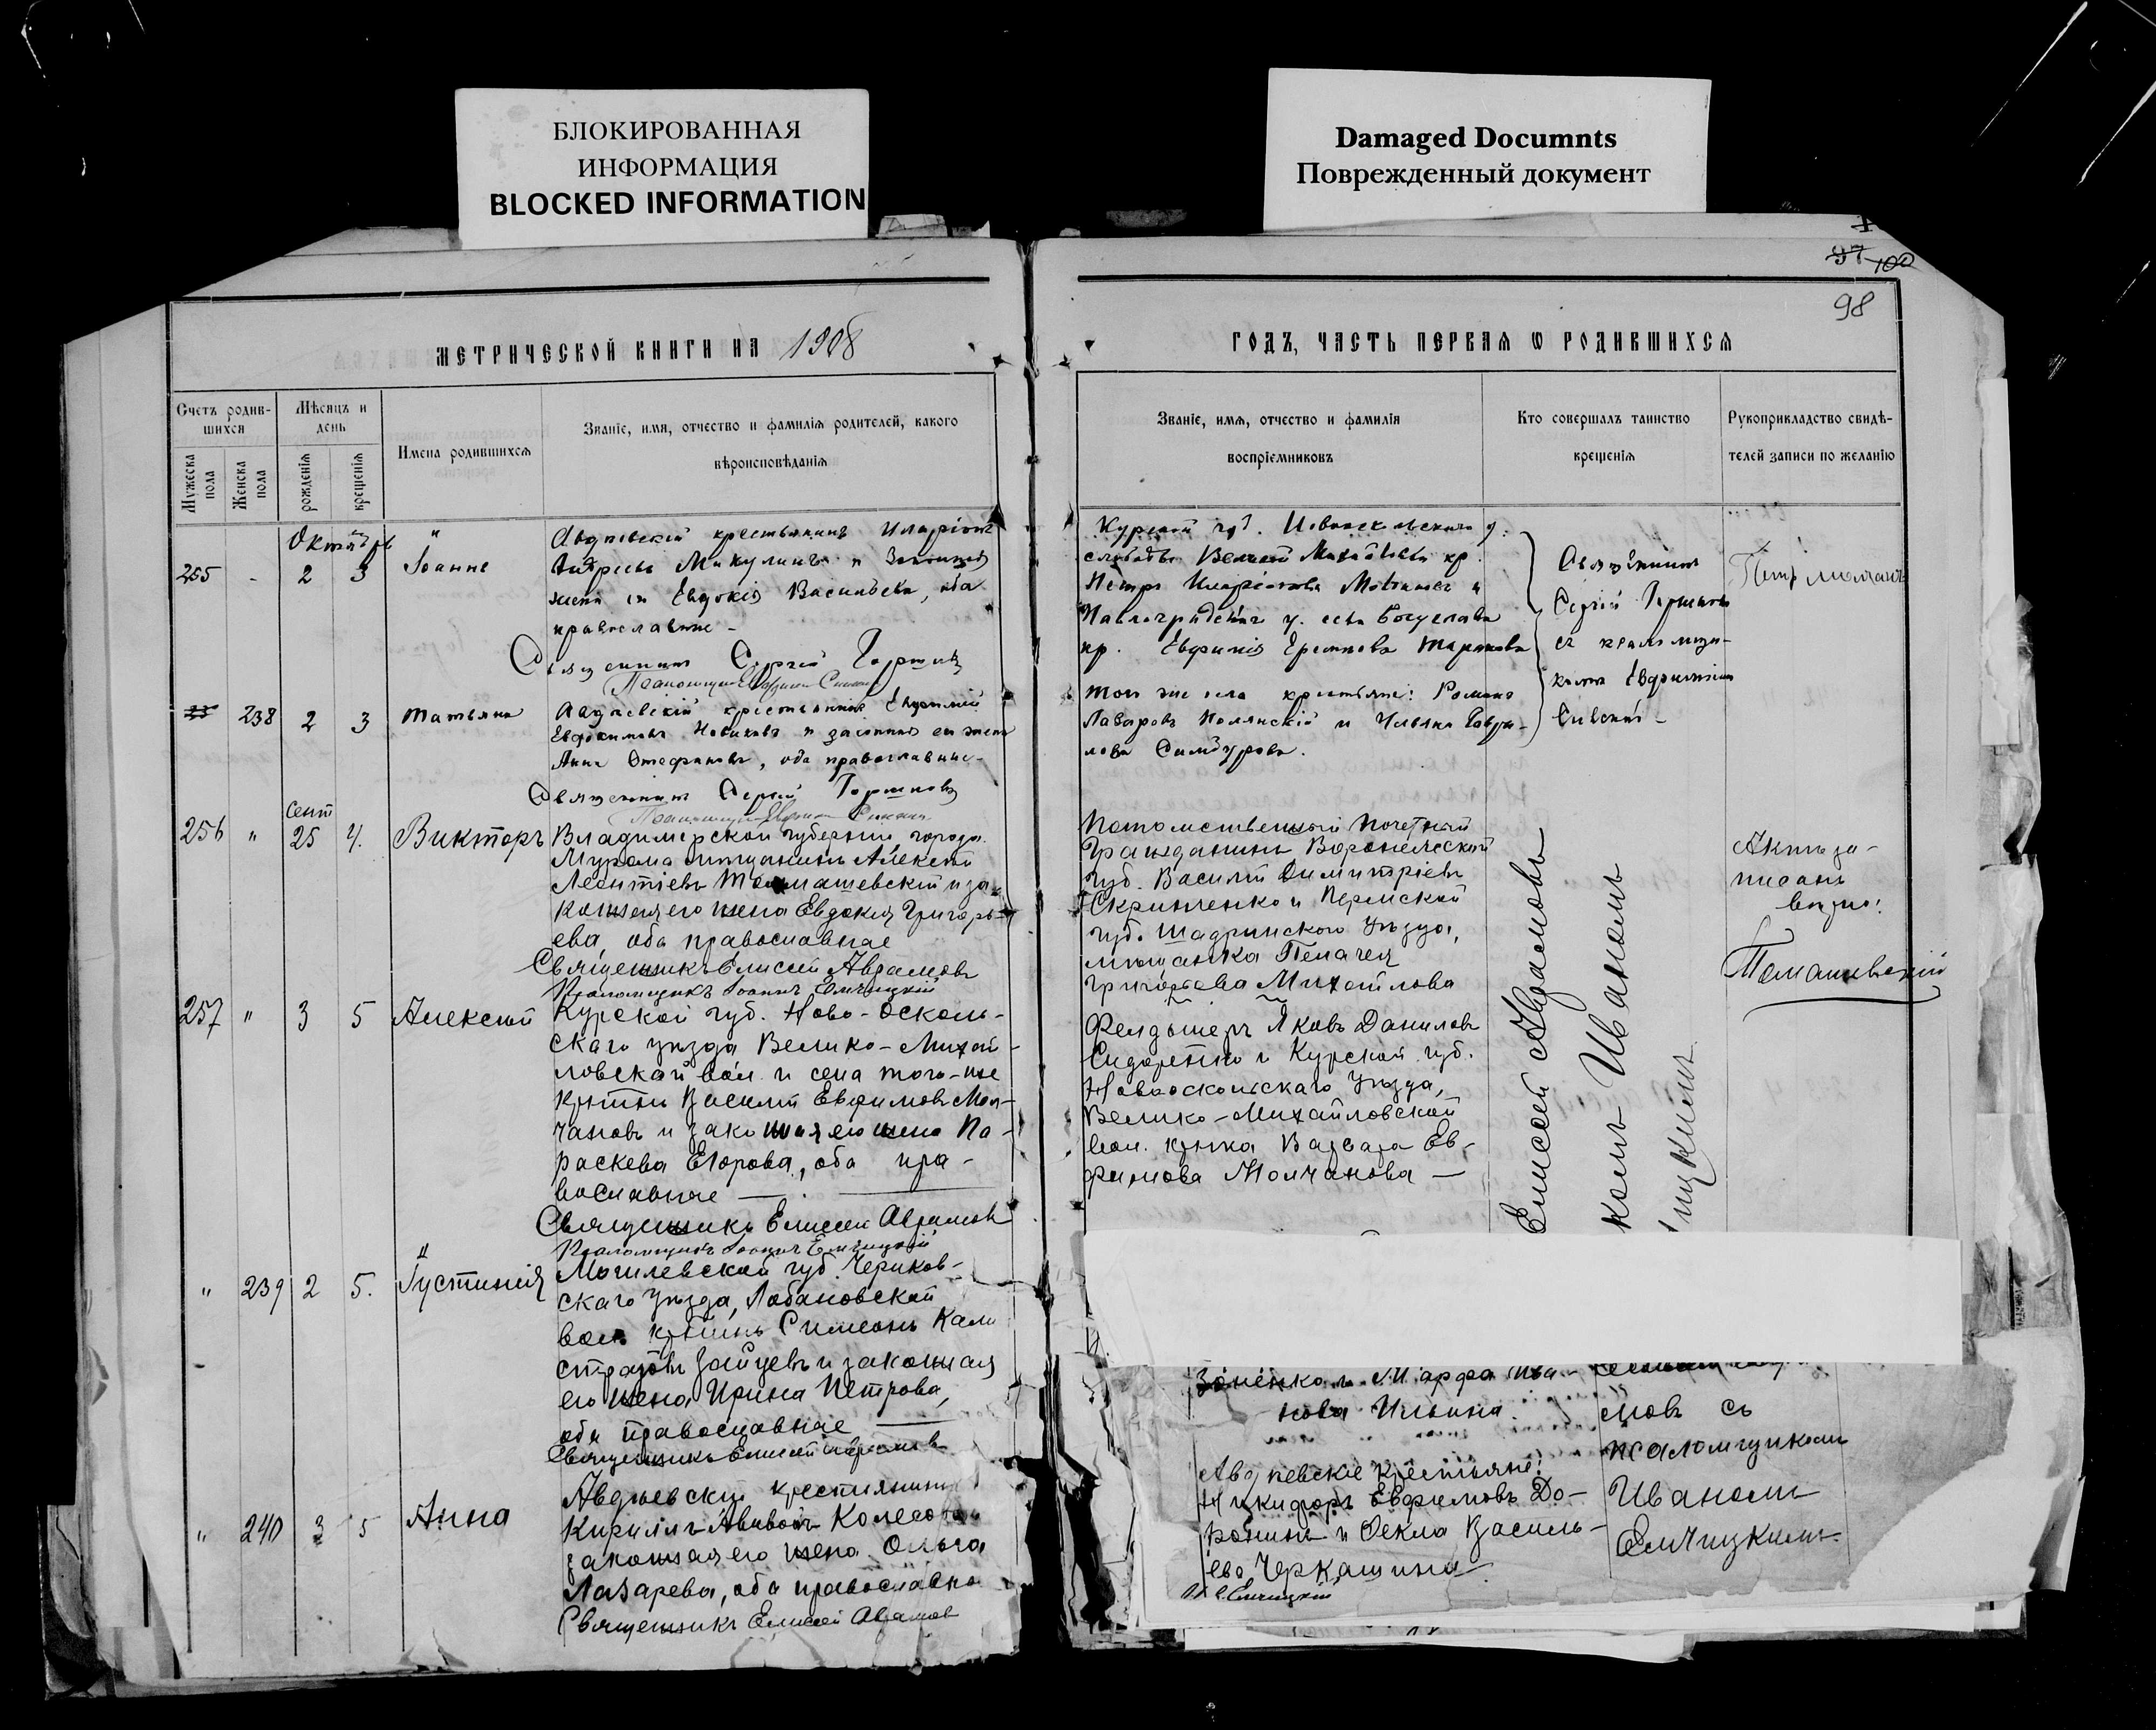 БЛОКИРОВАННАЯ
ИНФОРМАЦИЯ
BLOCKED INFORMATION
Damaged Documnts
Поврежденный документ
97 100
98
МЕТРИЧЕСКОЙ КНИГИ НА 1908
Счетъ родив-
шихся
Мужеска
пола
Женска
пола
Мѣсяцъ и
день
рожденія
крещенія
Имена родившихся
Званіе, имя, отчество и фамилія родителей, какого
вѣроисповѣданія
Октябрь
255 - 2 3 Іоаннъ
Авдѣевскій крестьянинъ Иларіонъ
Андреевъ Микулинъ и Законная
жена его Евдокія Васильева, оба
православные -
Священникъ Сергій Горшковъ
238 2 3 Татьяна
Авдѣевскій крестьянинъ Евфимій
Евдокимовъ Новиковъ и законная его жена
Анна Стефанова, оба православные -
Священникъ Сергій Горшковъ
сент
256 " 25 4. Викторъ
Владимірской губерніи, города
Мурома мѣщанинъ Алексѣй
Леонтіевъ Томашевскій и за-
конная его жена Евдокія Григорь-
ева, оба православные
Священникъ Елисей Авраамовъ
Псаломщикъ Іоаннъ Емчицкій
257 " 3 5 Алексій
Курской губ. Ново-Осколь-
скаго уѣзда Велико-Михай-
ловской вол. и села того-же
кр-нинъ Василій Евфимовъ Мол-
чановъ и законная его жена Па-
раскева Егорова, оба пра-
вославные —
Священникъ Елисей Авраамовъ
Псаломщикъ Іоаннъ Емчицкій
" 239 2 5. Іустинія
Могилевской губ. Чериков-
скаго уѣзда, Лобановской
вол. кр-нинъ Симеонъ Кали
стратовъ Зайцевъ и законная
его жена Ирина Петрова,
оба православные —
Священникъ Елисей Авраамовъ
" 240 3 5 Анна
Авдѣевскій крестьянинъ
Кириллъ Колесовъ и
законная его жена Ольга
Лазарева, оба православно
Священникъ Елисей Авраамов
ГОДЪ, ЧАСТЬ ПЕРВАЯ Ѡ РОДИВШИХСЯ
Званіе, имя, отчество и фамилія
воспріемниковъ
Кто совершалъ таинство
крещенія
Рукоприкладство свидѣ-
телей записи по желанію
Курской губ. Новооскольскаго у.
слободы Великой Михайловки кр.
Петръ Иларіоновъ и
Павлоградскаго у. села Богуслава
кр. Евфимія Еремѣева
того же села крестьяне: Романъ
Лазаревъ Полянскій и Ульяна Гаври-
лова
Священникъ
Сергій Горшковъ
съ псаломщи-
комъ Евфиміемъ
Потомственный Почетный
Гражданинъ Воронежской
губ. Василій Димитріевъ
Скрипченко и Пермской
губ. Шадринскаго уѣзда,
мѣщанка Пелагея
Григорьева Михайлова
Актъ за-
писанъ
вѣрно:
Томашевскій
Фельдшеръ Яковъ Даниловъ
Сидоренко и Курской губ.
Новооскольскаго уѣзда,
Велико-Михайловской
вол. кр-нка Варвара Ев-
фимова Молчанова —
Елисей Авраамовъ
комъ Иваномъ
Марфа Ива-
нова Ильина.
мовъ съ
псаломщикомъ
Иваномъ
Емчицкимъ
Авдѣевскіе крестьяне:
Никифоръ Евфимовъ До-
ронинъ и Ѳекла Василь-
ева Черкашина
Емчицкій